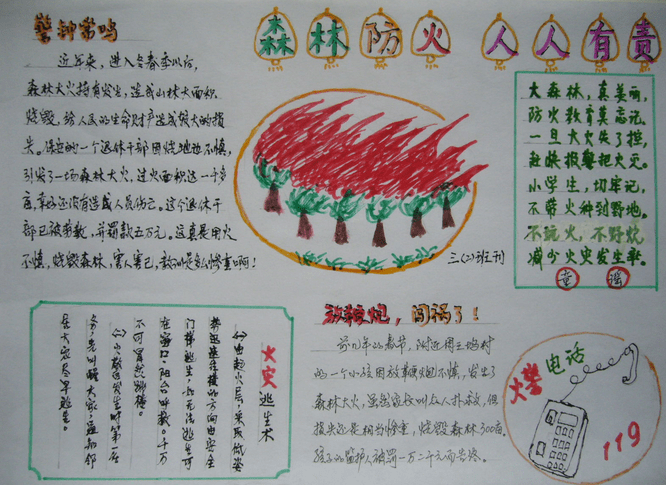 森林防火 人人有责
警钟常鸣
近年来，进入冬春季以后，
森林大火持有发生，造成山林大面积
烧毁，给人民的生命财产造成很大的损
失。保定的一个退休干部因烧地边不慎，
引发了一场森林大火，过火面积达一千多
亩，幸好还没有造成人员伤亡。这个退休干
部已被拘教，并罚款五万元，这真是用火
不慎，烧毁森林，害人害己，教训是多么惨重啊！
三(2)班刊
大森林，真美丽，
防火教育莫忘记，
一旦大火失了控，
赶快报警把火灭。
小学生，切牢记，
不带火种到野地。
不玩火，不野炊，
减少火灾发生率。
童谣
火灾逃生术
(一)由起火层，采取低姿
势迅速往楼的方向由安全
门梯逃生，如无法逃生可
在窗口、阳台呼救。千万
不可冒然跳楼。
(二)火灾发生时第一
务，先叫醒大家，通知邻
居大家及早逃生。
放鞭炮，闯祸了！
前几年的春节，附近村
的一个小孩因放鞭炮不慎，发生了
森林大火，虽然家长叫众人扑救，但
损失还是相当惨重，烧毁森林300亩，
孩子的监护人被罚一万二千元而告终。
火警电话
119